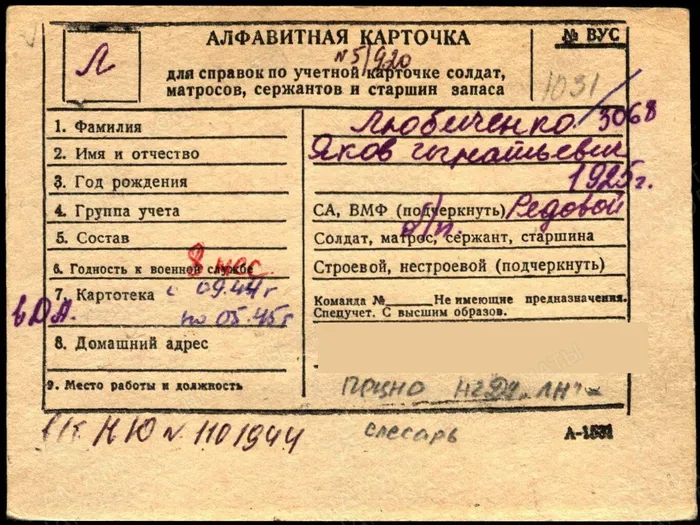 АЛФАВИТНАЯ КАРТОЧКА
№ ВУС
Л
N 5/920
для справок по учетной карточке солдат,
матросов, сержантов и старшин запаса
1031
1. Фамилия Любиченко 3068
2. Имя и отчество Яков Игнатьевич
3. Год рождения 1925г.
4. Группа учета СА, ВМФ (подчеркнуть) Редовой
5. Состав Солдат, матрос, сержант, старшина
б/п
6. Годность к военной службе Строевой, нестроевой (подчеркнуть)
8 мес.
7. Картотека с 09.44г Команда №______Не имеющие предназначения.
Спецучет. С высшим образов.
в ДА. по 05.45г
8. Домашний адрес
9. Место работы и должность
НЮ N 1101944
слесарь
А-1531